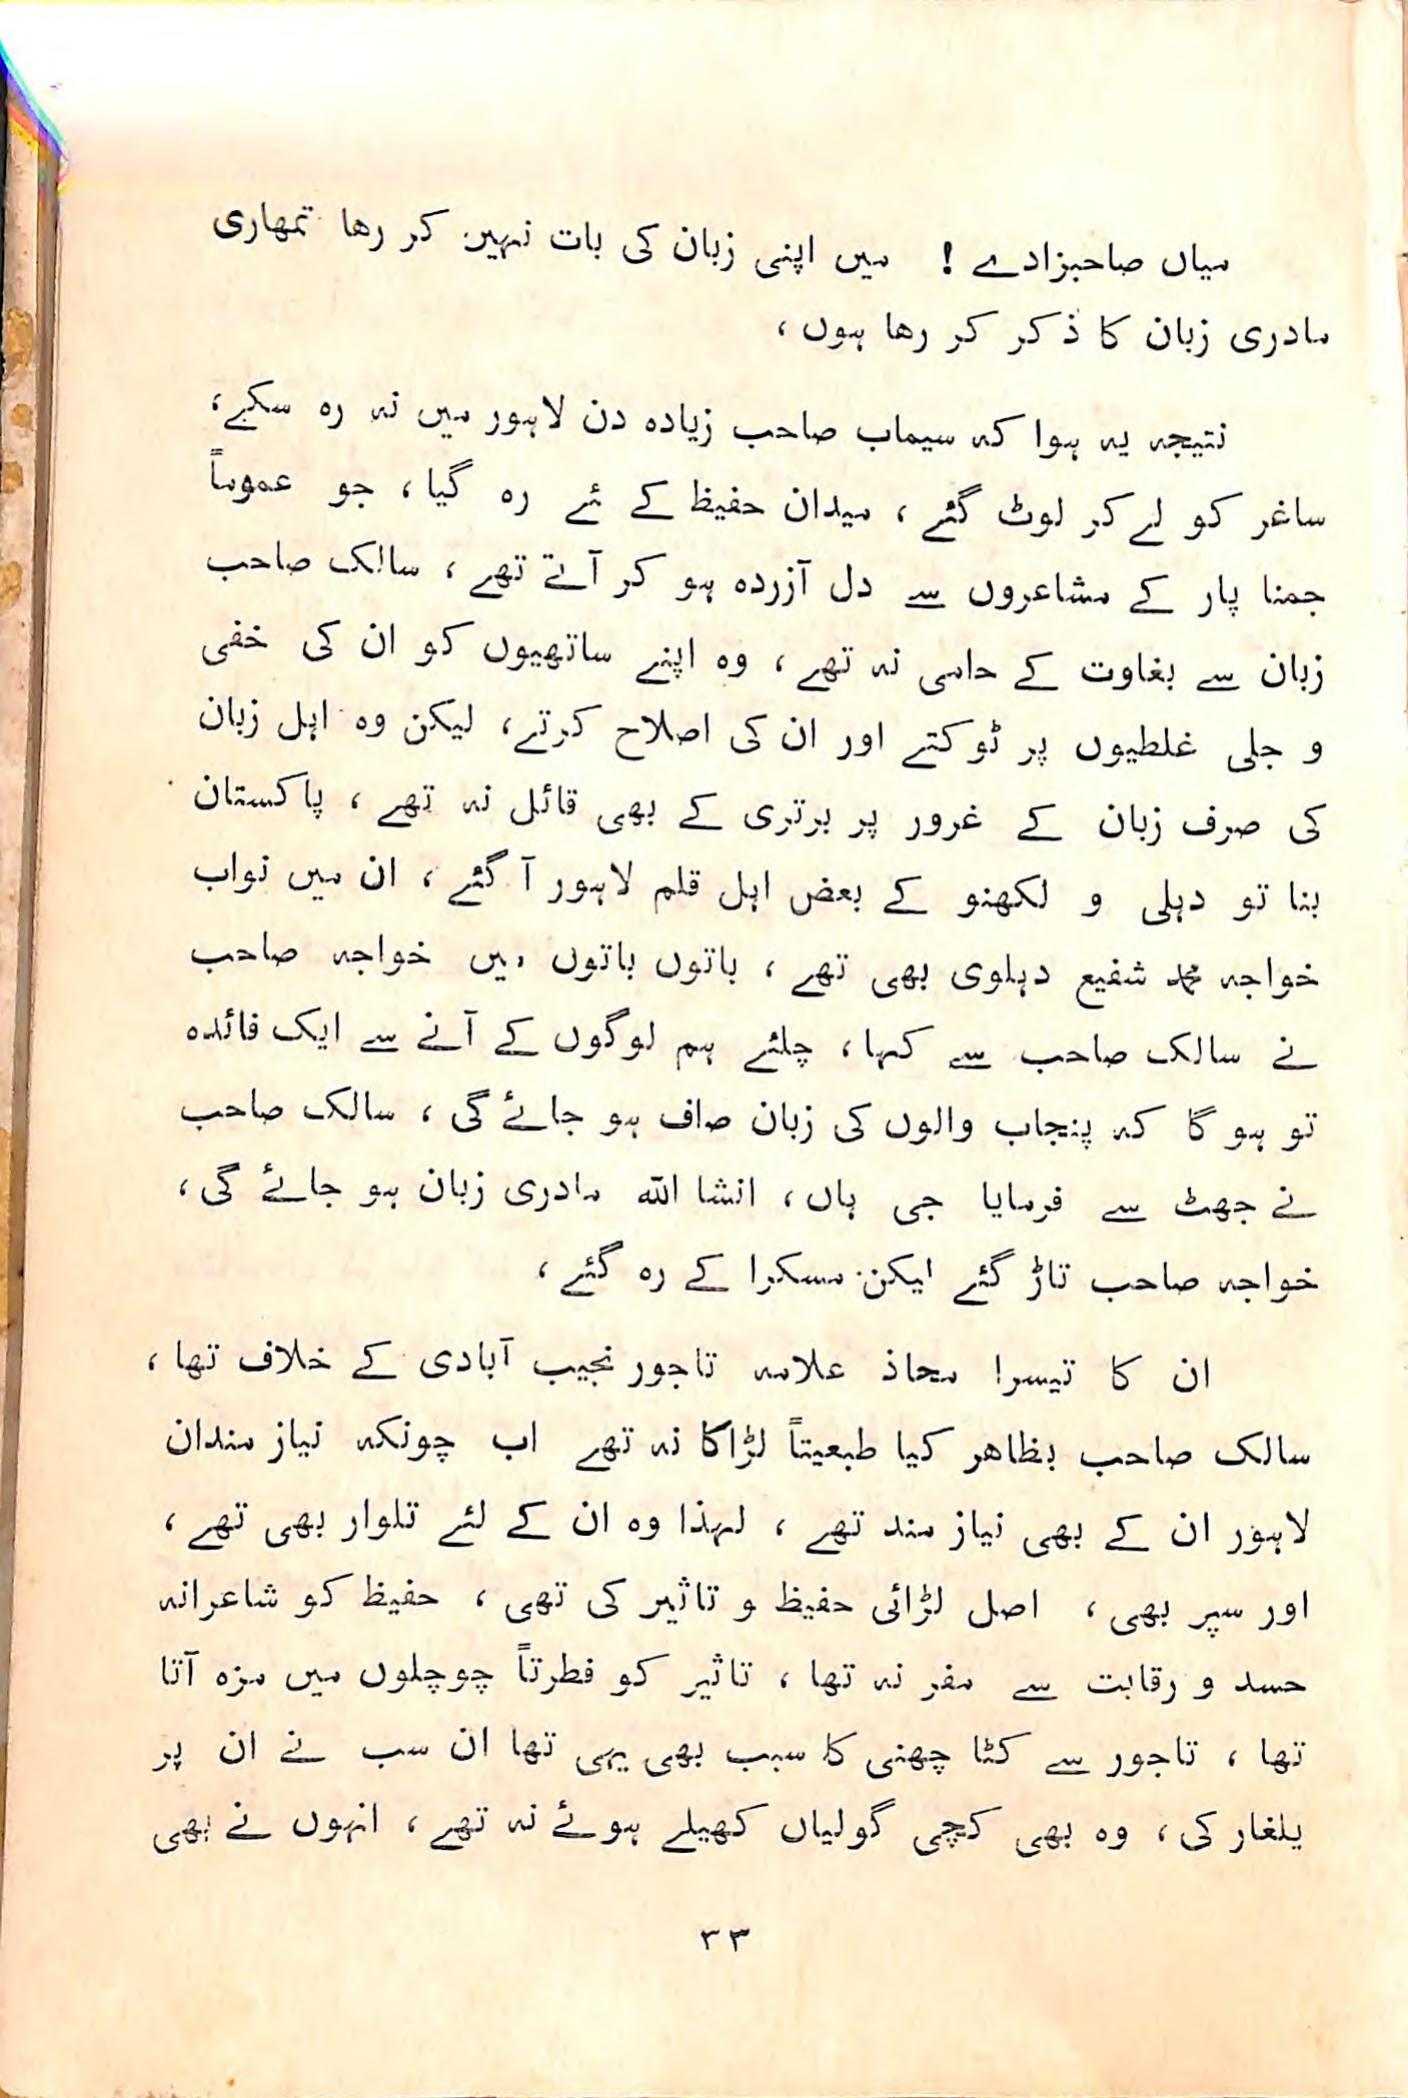 میاں صاحبزادے ! میں اپنی زبان کی بات نہیں کر رھا تمھاری
مادری زبان کا ذکر کر رھا ہوں ،
نتیجہ یہ ہوا کہ سیماب صاحب زیادہ دن لاہور میں نہ رہ سکے ،
ساغر کو لے کر لوٹ گئے ، میدان حفیظ کے ئے رہ گیا ، جو عموماً
جمنا پار کے مشاعروں سے دل آزردہ ہو کر آتے تھے ، سالک صاحب
زبان سے بغاوت کے حامی نہ تھے ، وہ اپنے ساتھیوں کو ان کی خفی
و جلی غلطیوں پر ٹوکتے اور ان کی اصلاح کرتے ، لیکن وہ اہل زبان
کی صرف زبان کے غرور پر برتری کے بھی قائل نہ تھے ، پاکستان
بنا تو دہلی و لکھنو کے بعض اہل قلم لاہور آ گئے ، ان میں نواب
خواجہ محمد شفیع دہلوی بھی تھے ، باتوں باتوں میں خواجہ صاحب
نے سالک صاحب سے کہا ، چلئے ہم لوگوں کے آنے سے ایک فائدہ
تو ہو گا کہ پنجاب والوں کی زبان صاف ہو جائے گی ، سالک صاحب
نے جھٹ سے فرمایا جی ہاں ، انشا اللہ مادری زبان ہو جائے گی ،
خواجہ صاحب تاڑ گئے لیکن مسکرا کے رہ گئے ،
ان کا تیسرا محاذ علامہ تاجور نجیب آبادی کے خلاف تھا ،
سالک صاحب بظاھر کیا طبعیتاً لڑاکا نہ تھے اب چونکہ نیاز مندان
لاہور ان کے بھی نیاز مند تھے ، لہذا وہ ان کے لئے تلوار بھی تھے ،
اور سپر بھی ، اصل لڑائی حفیظ و تاثیر کی تھی ، حفیظ کو شاعرانہ
حسد و رقابت سے مفر نہ تھا ، تاثیر کو فطرتاً چوچلوں میں مزہ آتا
تھا ، تاجور سے کٹا چھنی کا سبب بھی یہی تھا ان سب نے ان پر
یلغار کی ، وہ بھی کچی گولیاں کھیلے ہوئے نہ تھے ، انہوں نے بھی
۳۳